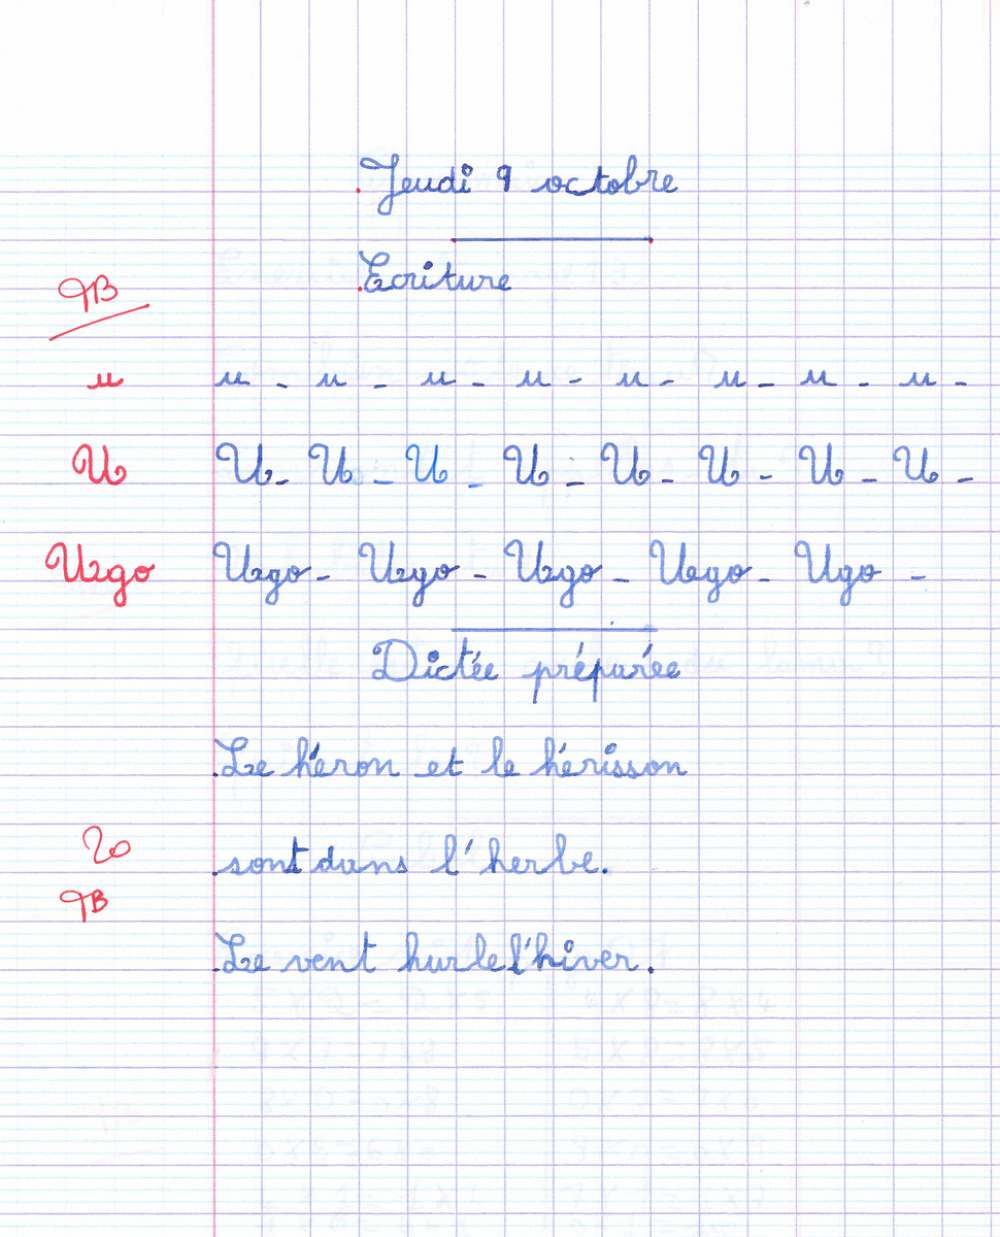 Jeudi 9 octobre
Ecriture
TB
u u - u - u - u - u - u - u - u -
U U - U - U - U - U - U - U - U -
Ugo Ugo - Ugo - Ugo - Ugo - Ugo -
Dictée préparée
Le héron et le hérisson
20 sont dans l'herbe.
TB
Le vent hurle l'hiver.